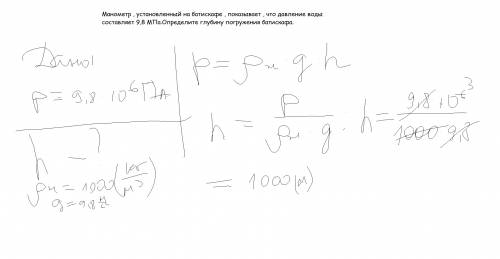 Манометр , установленный на батискафе , показывает , что давление воды
составляет 9,8 МПа.Определите глубину погружения батискафа.
Дано
p = 9,8 · 10⁶ Па
h - ?
ρж = 1000 (кг/м³)
g = 9,8
p = ρж g h
h = p / ρж · g . h = 9,8 · 10⁶ ³ / 1000 · 9,8
= 1000 (м)